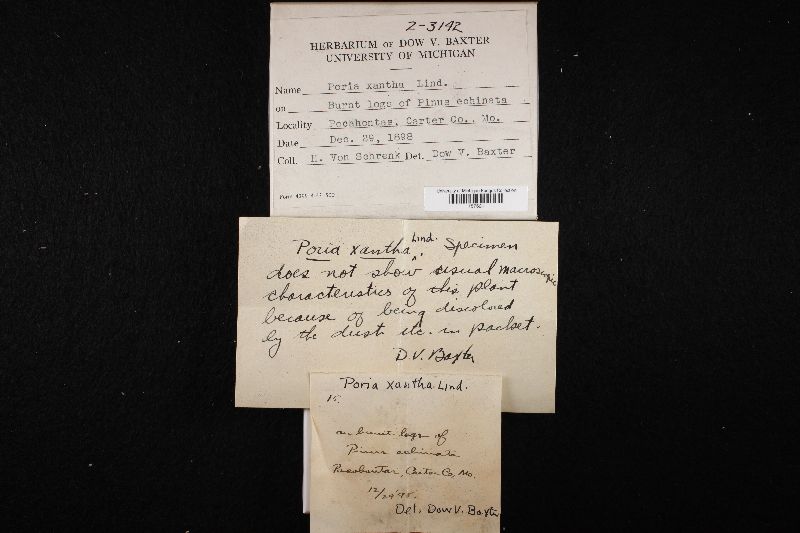 2-3142
HERBARIUM OF DOW V. BAXTER
UNIVERSITY OF MICHIGAN
Name Poria xantha Lind.
on Burnt logs of Pinus echinata
Locality Pocahontas, Carter Co., Mo.
Date Dec. 29, 1898
Coll. H. Von Schrenk Det. Dow V. Baxter
University of Michigan Fungus Collection
Poria xantha Lind. Specimen
does not show usual macroscopic
characteristics of this plant
because of being discolored
by the dust etc. in packet.
D.V. Baxter
Poria xantha Lind.
15.
on burnt logs of
Pinus echinata
Pocahontas, Carter Co, Mo.
12/29/98.
Det. Dow V. Baxter